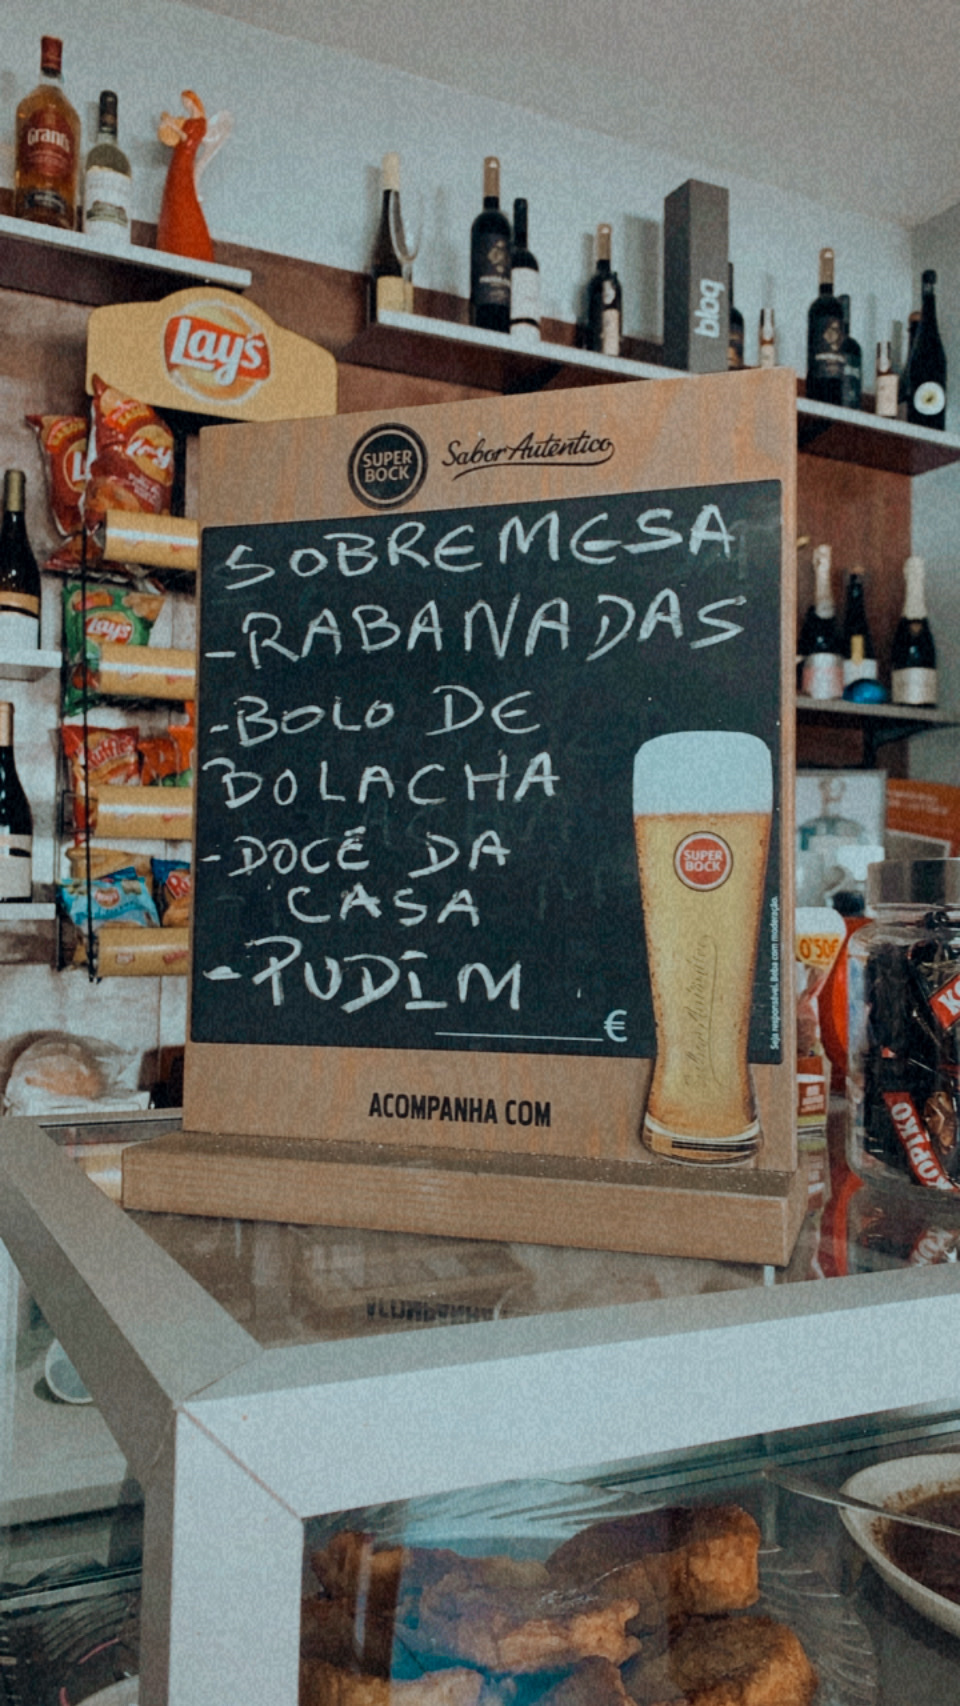 Grant's
Lay's
bloq
SUPER BOCK
Sabor Autêntico
SOBREMESA
-RABANADAS
-BOLO DE
BOLACHA
-DOCE DA
CASA
-PUDIM
€
SUPER BOCK
Sabor Autêntico
Seja responsável. Beba com moderação.
ACOMPANHA COM
Lay's
Lay's
Ruffles
0'50€
KOPIKO